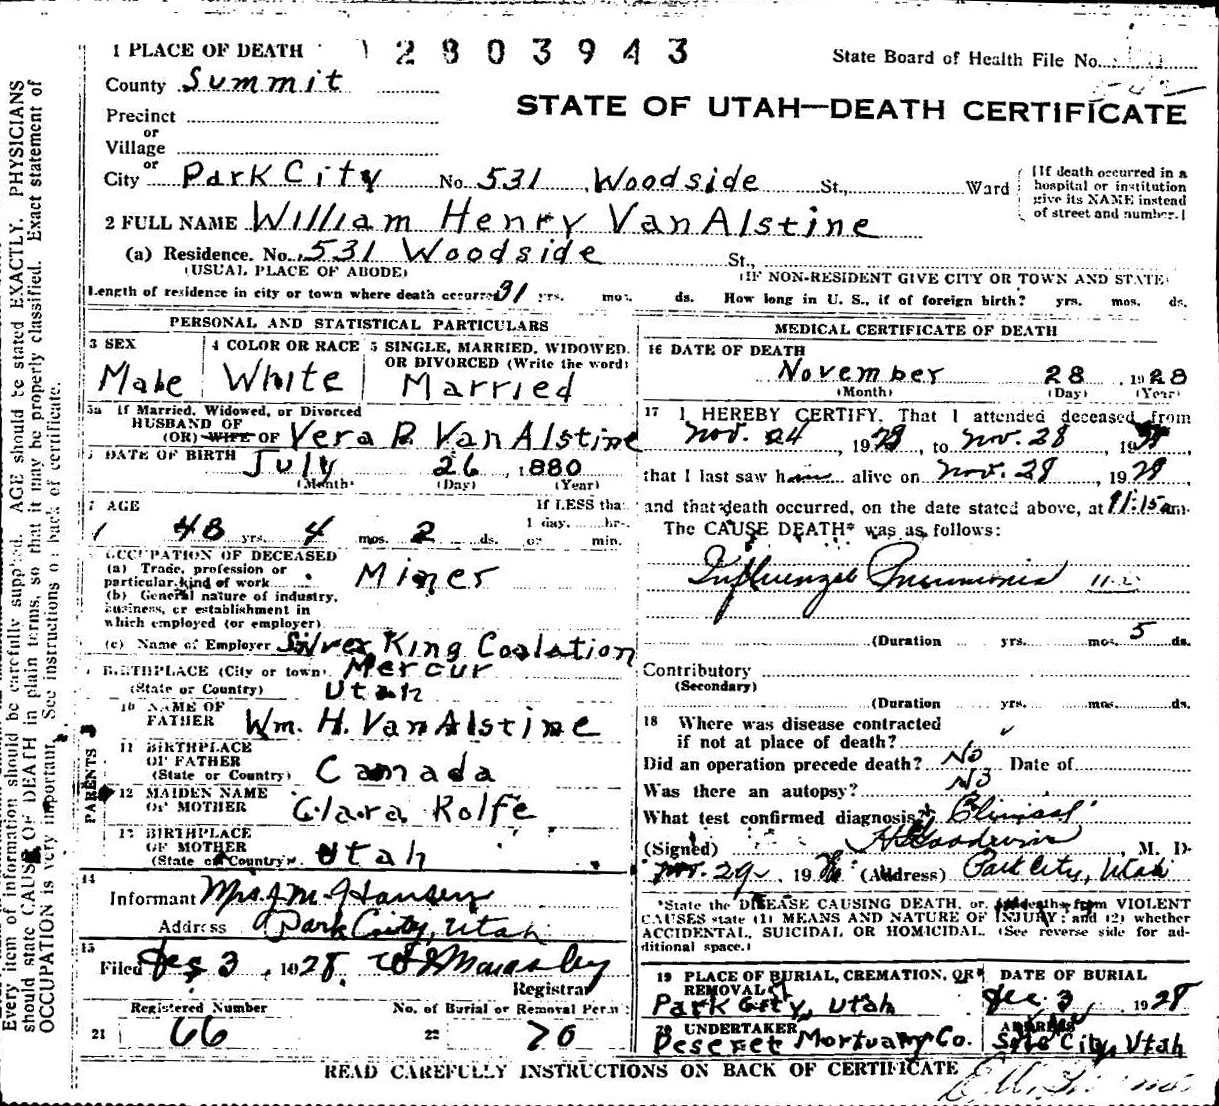 1 PLACE OF DEATH 2803943 State Board of Health File No.
County Summit
STATE OF UTAH—DEATH CERTIFICATE
Precinct
or
Village
or
City Park City No. 531 Woodside St., Ward
(If death occurred in a hospital or institution give its NAME instead of street and number.)
2 FULL NAME William Henry Van Alstine
(a) Residence. No. 531 Woodside St.,
(USUAL PLACE OF ABODE) (IF NON-RESIDENT GIVE CITY OR TOWN AND STATE)
Length of residence in city or town where death occurred 31 yrs. mos. ds. How long in U. S., if of foreign birth? yrs. mos. ds.
PERSONAL AND STATISTICAL PARTICULARS
3 SEX 4 COLOR OR RACE 5 SINGLE, MARRIED, WIDOWED, OR DIVORCED (Write the word)
Male White Married
5a If Married, Widowed, or Divorced
HUSBAND OF
(OR) WIFE OF Vera P. Van Alstine
DATE OF BIRTH July 26, 1880
(Month) (Day) (Year)
7 AGE If LESS than
48 yrs. 4 mos. 2 ds. 1 day, hrs. or min.
OCCUPATION OF DECEASED
(a) Trade, profession or particular kind of work Miner
(b) General nature of industry, business, or establishment in which employed (or employer)
(c) Name of Employer Silver King Coalation
BIRTHPLACE (City or town) Mercur
(State or Country) Utah
10 NAME OF FATHER Wm. H. Van Alstine
11 BIRTHPLACE OF FATHER
(State or Country) Canada
PARENTS
12 MAIDEN NAME OF MOTHER Clara Rolfe
13 BIRTHPLACE OF MOTHER
(State or Country) Utah
14
Informant Mrs J M Hansen
Address Park City, Utah
15
Filed Dec 3, 1928.
Registrar
Registered Number No. of Burial or Removal Permit
21 66 22 70
MEDICAL CERTIFICATE OF DEATH
16 DATE OF DEATH
November 28, 1928
(Month) (Day) (Year)
17 I HEREBY CERTIFY, That I attended deceased from
Nov. 24, 1928, to Nov. 28, 1928,
that I last saw him alive on Nov. 28, 1928,
and that death occurred, on the date stated above, at 11:15 am.
The CAUSE DEATH* was as follows:
Influenzal Pneumonia
(Duration yrs. mos. 5 ds.
Contributory
(Secondary)
(Duration yrs. mos. ds.
18 Where was disease contracted
if not at place of death?
Did an operation precede death? No Date of
Was there an autopsy? No
What test confirmed diagnosis? Clinical
(Signed) M. D.
Nov. 29, 1928 (Address) Park City, Utah
*State the DISEASE CAUSING DEATH, or, in deaths from VIOLENT
CAUSES state (1) MEANS AND NATURE OF INJURY; and (2) whether
ACCIDENTAL, SUICIDAL OR HOMICIDAL. (See reverse side for additional space.)
19 PLACE OF BURIAL, CREMATION, OR REMOVAL DATE OF BURIAL
Park City, Utah Dec. 3, 1928
20 UNDERTAKER ADDRESS
Deseret Mortuary Co. Salt Lake City, Utah
READ CAREFULLY INSTRUCTIONS ON BACK OF CERTIFICATE
Every item of information should be carefully supplied. AGE should be stated EXACTLY. PHYSICIANS
should state CAUSE OF DEATH in plain terms, so that it may be properly classified. Exact statement of
OCCUPATION is very important. See instructions on back of certificate.